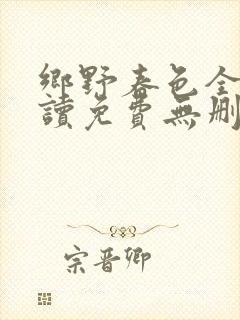 鄉野春色全
讀免費無刪
宗晉卿